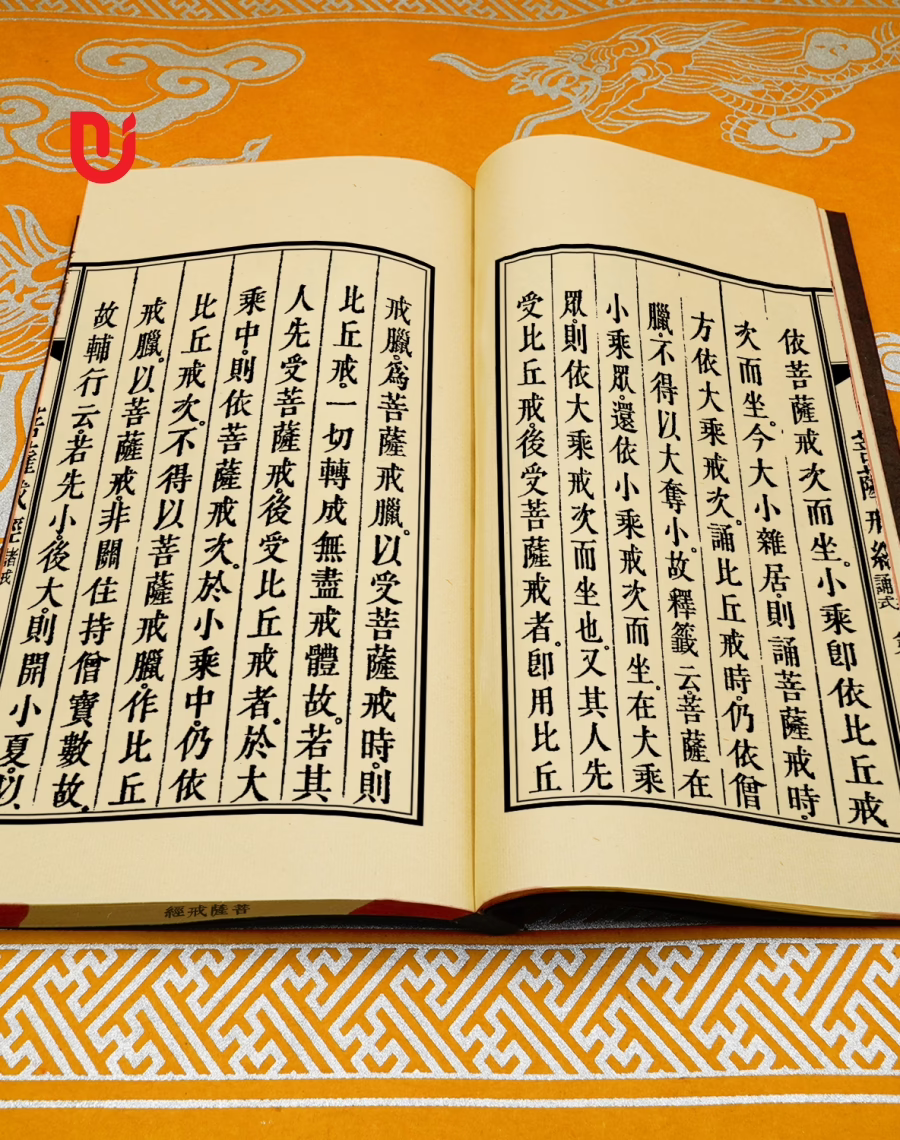 依菩薩戒次而坐。小乘卽依比丘戒
次而坐。今大小雜居。則誦菩薩戒時。
方依大乘戒次。誦比丘戒時。仍依僧
臘。不得以大奪小。故釋籤云。菩薩在
小乘眾。還依小乘戒次而坐。在大乘
眾則依大乘戒次而坐也。又其人先
受比丘戒。後受菩薩戒者。卽用比丘
戒臘。爲菩薩戒臘。以受菩薩戒時。則
比丘戒。一切轉成無盡戒體故。若其
人先受菩薩戒。後受比丘戒者。於大
乘中。則依菩薩戒次。於小乘中。仍依
比丘戒次。不得以菩薩戒臘。作比丘
戒臘。以菩薩戒。非關住持僧寶數故。
故輔行云。若先小。後大。則開小夏。以
菩薩戒經 誦式
菩薩戒經 諸戒
菩薩戒經